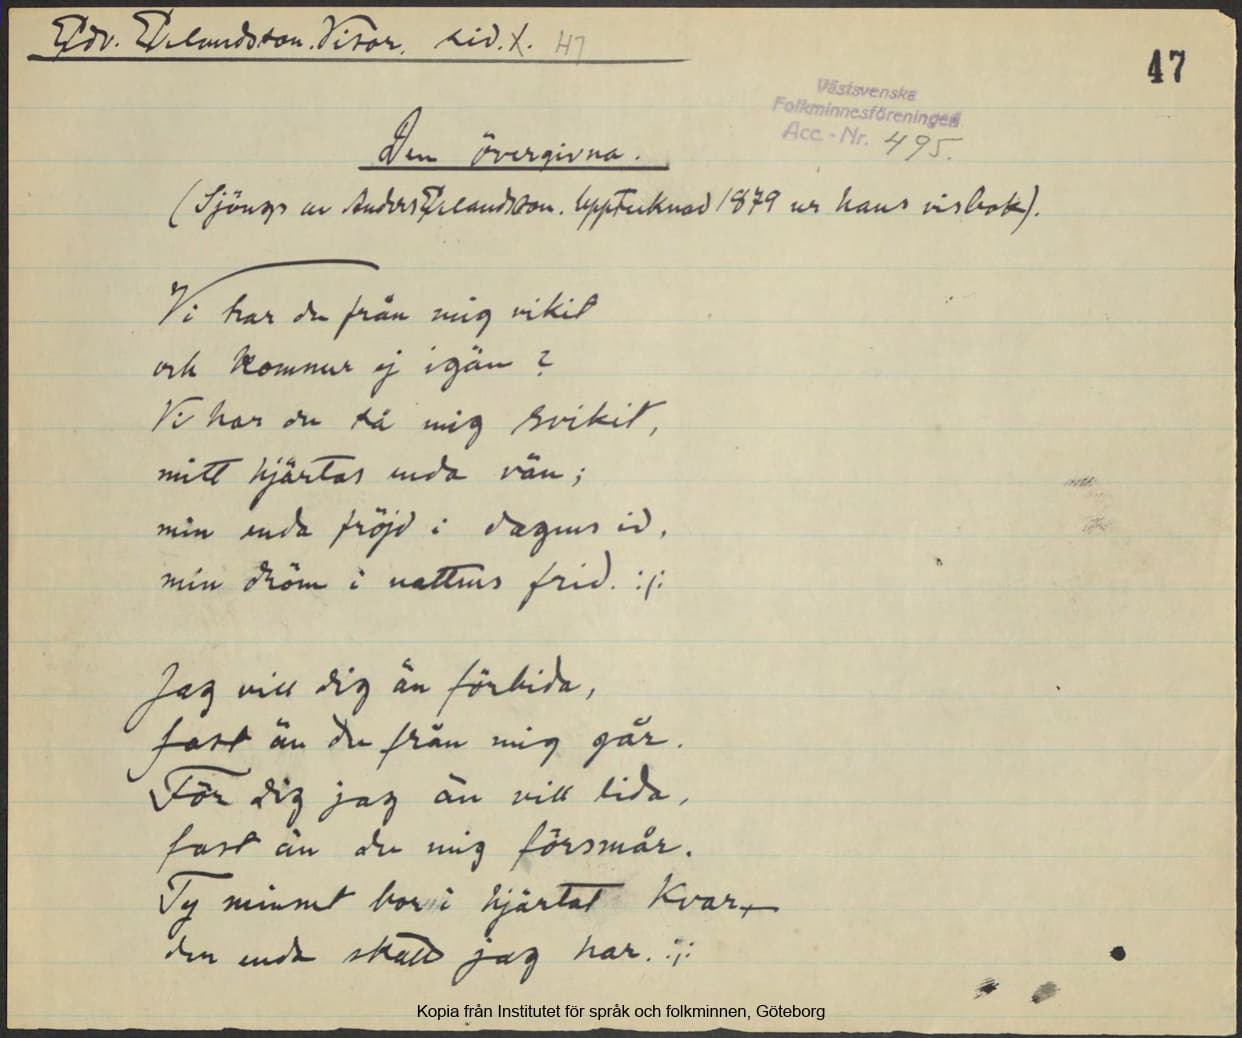 Edv. Erlandston. Visor. sid. X. 47
47
Västsvenska
Folkminnesföreningen
Acc.-Nr. 495.
Den övergivna.
(Sjöngs av Anders Erlandston. Upptecknad 1879 ur hans visbok).
Vi har du från mig vikit
och kommer ej igän?
Vi har du så mig svikit,
mitt hjärtas enda vän;
min enda fröjd i dagens id,
min dröm i nattens frid. :/:
Jag vill dig än förbida,
fast än du från mig går.
För dig jag än vill lida,
fast än du mig försmår.
Ty minnet bor i hjärtat kvar
den enda skatt jag har. :/:
Kopia från Institutet för språk och folkminnen, Göteborg